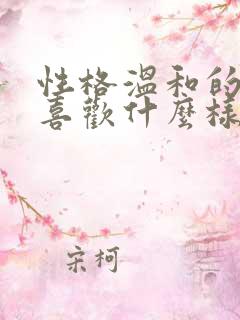 性格溫和的
喜歡什麼樣
宋柯